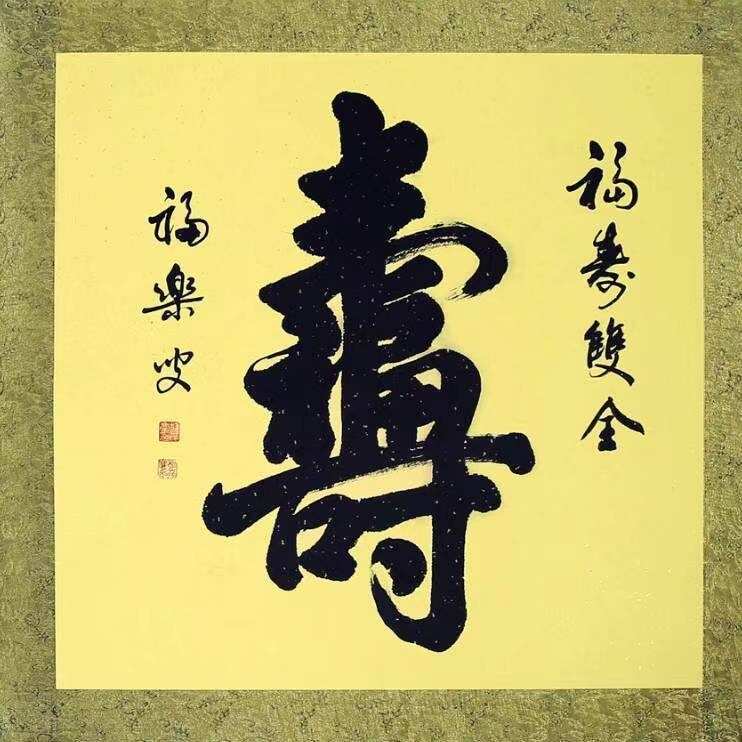 福壽雙全
壽
福樂叟